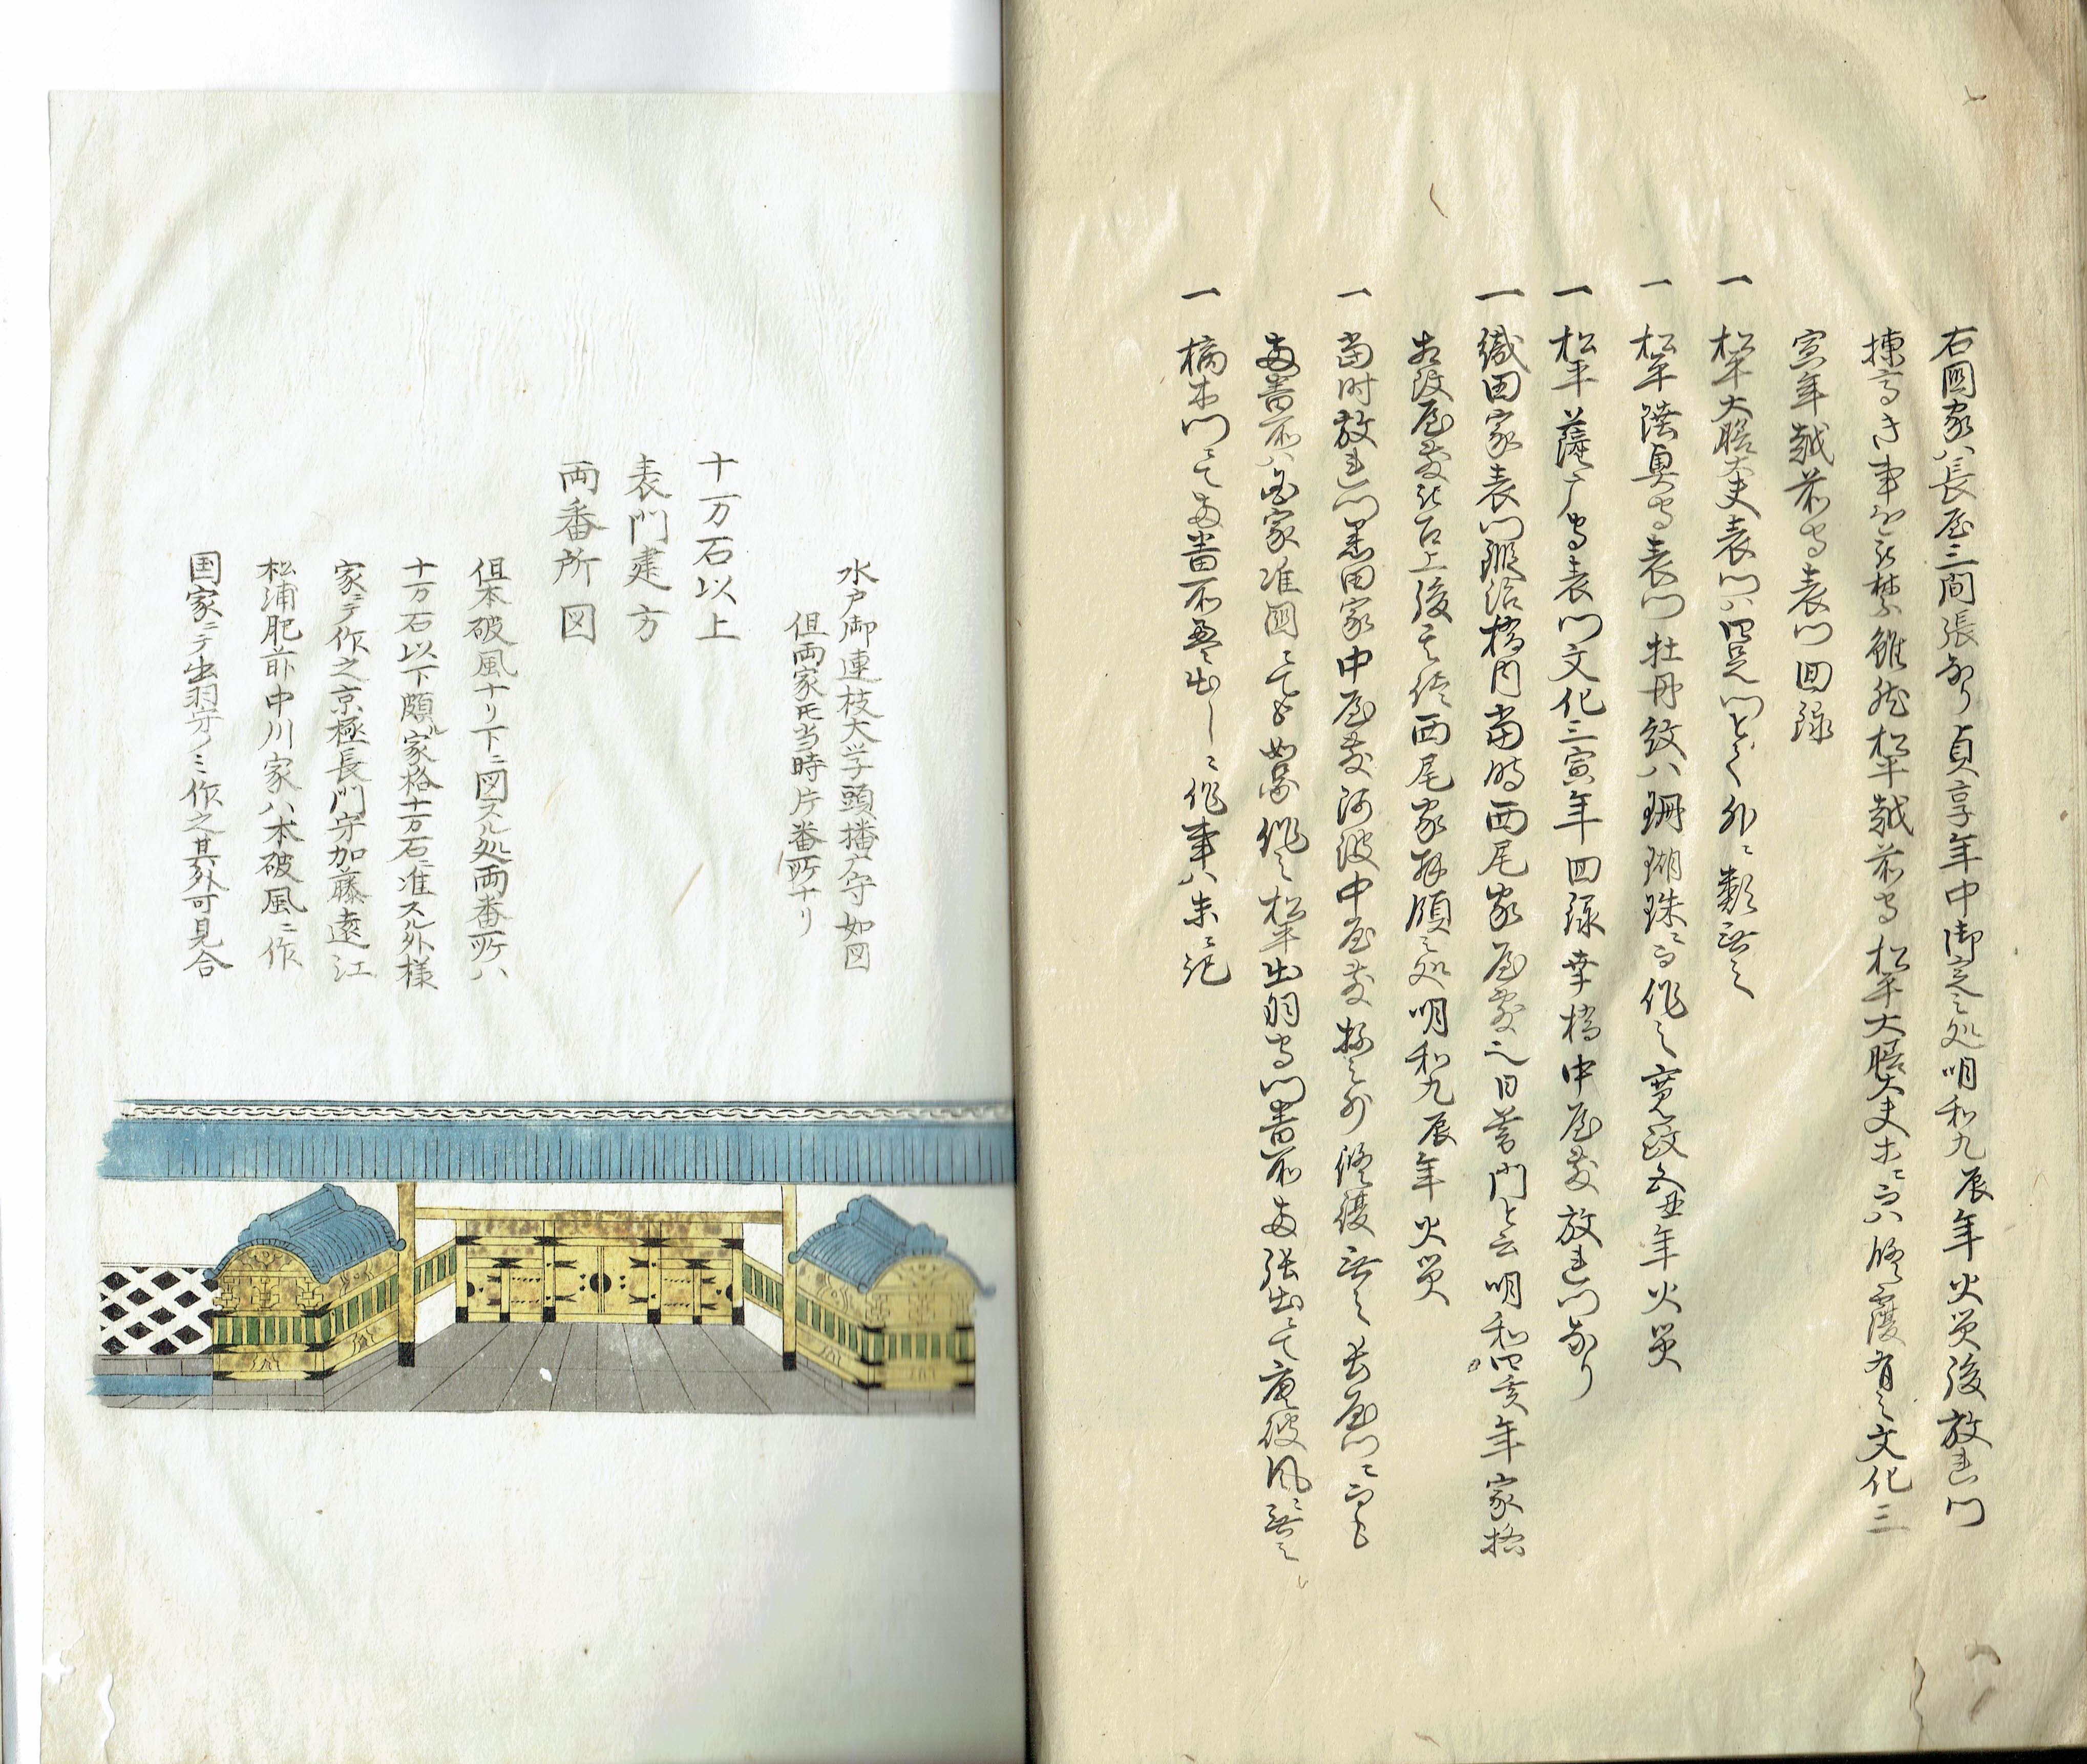 右國家ハ長屋三間張あり貞享年中御定之処明和九辰年火災後放れ門
棟高き事を被禁雖然松平越前守松平大膳大夫ニ而ハ修覆有之文化三
寅年越前守表門回録
一 松平大膳大夫表門ハ四足門とて外ニ類無之
一 松平陸奥守表門牡丹紋ハ珊瑚珠ニ而作之寛政五丑年火災
一 松平薩广守表門文化三寅年回録幸橋中屋敷放れ門あり
一 織田家表門鍛冶橋内当時西尾家屋敷之日昔門と云明和四亥年家格
相改屋敷被召上後其侭西尾家拝領之処明和九辰年火災
一 當时放れ門黒田家中屋敷阿波中屋敷之外修復無之長屋門ニ而も
両番所ハ國家准國ニても如斯作之松平出羽守門番所両張出ニて唐破風無之
一 楠木門ニて両番所無之出しニ作事ハ末ニ記
水戸御連枝大学頭播广守如図
但両家共当時片番所ナリ
十万石以上
表門建方
両番所図
但本破風ナリ下ニ図スル処両番所ハ
十万石以下頗ル家格十万石ニ准スル外様
家ニテ作之京極長門守加藤遠江
松浦肥前中川家ハ本破風ニ作
国家ニテ出羽守ノミ作之其外可見合